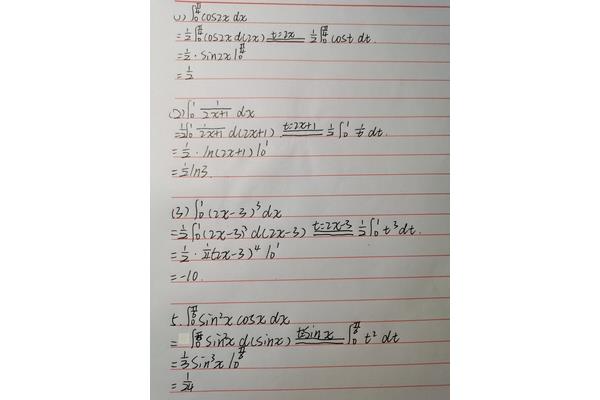 (1) ∫₀^(π/4) cos2x dx
= 1/2 ∫₀^(π/4) cos2x d(2x) t=2x 1/2 ∫₀^(π/4) cost dt.
= 1/2 · sin2x |₀^(π/4)
= 1/2
(2) ∫₀¹ 1/(2x+1) dx
= 1/2 ∫₀¹ 1/(2x+1) d(2x+1) t=2x+1 1/2 ∫₀¹ 1/t dt.
= 1/2 · ln(2x+1) |₀¹
= 1/2 ln3.
(3) ∫₀¹ (2x-3)³ dx
= 1/2 ∫₀¹ (2x-3)³ d(2x-3) t=2x-3 1/2 ∫₀¹ t³ dt.
= 1/2 · 1/4 (2x-3)⁴ |₀¹
= -10.
5. ∫₀^(π/6) sin²x cosx dx
= ∫₀^(π/6) sin²x d(sinx) t=sinx ∫₀^(π/6) t² dt
= 1/3 sin³x |₀^(π/6)
= 1/24